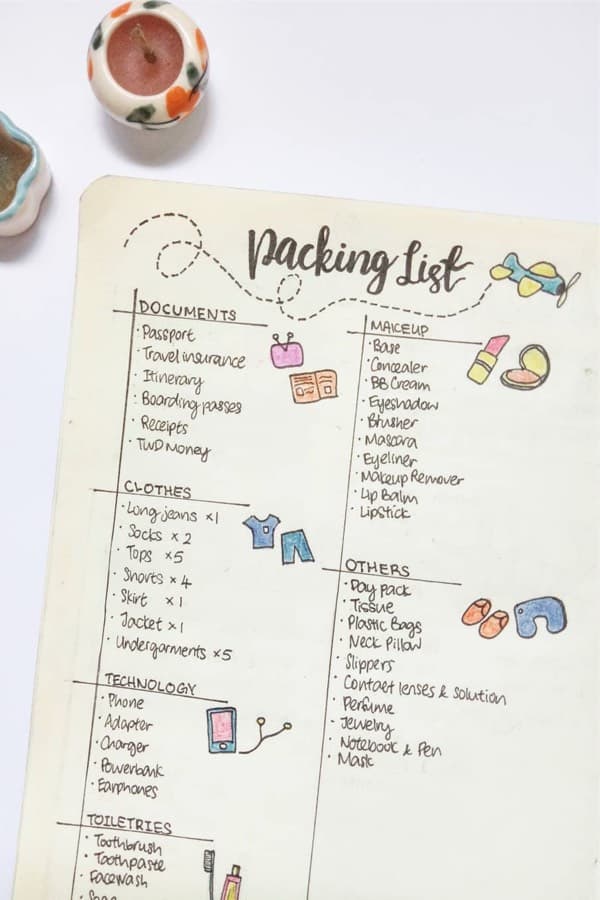 Packing List
DOCUMENTS
Passport
Travel insurance
Itinerary
Boarding passes
Receipts
TWD Money
CLOTHES
Long jeans x1
Socks x 2
Tops x5
Shorts x 4
Skirt x 1
Jacket x1
Undergarments x5
TECHNOLOGY
Phone
Adapter
Charger
Powerbank
Earphones
TOILETRIES
Toothbrush
Toothpaste
Facewash
MAKEUP
Base
Concealer
BB Cream
Eyeshadow
Blusher
Mascara
Eyeliner
Makeup Remover
Lip Balm
Lipstick
OTHERS
Day pack
Tissue
Plastic Bags
Neck Pillow
Slippers
Contact lenses & solution
Perfume
Jewelry
Notebook & Pen
Mask